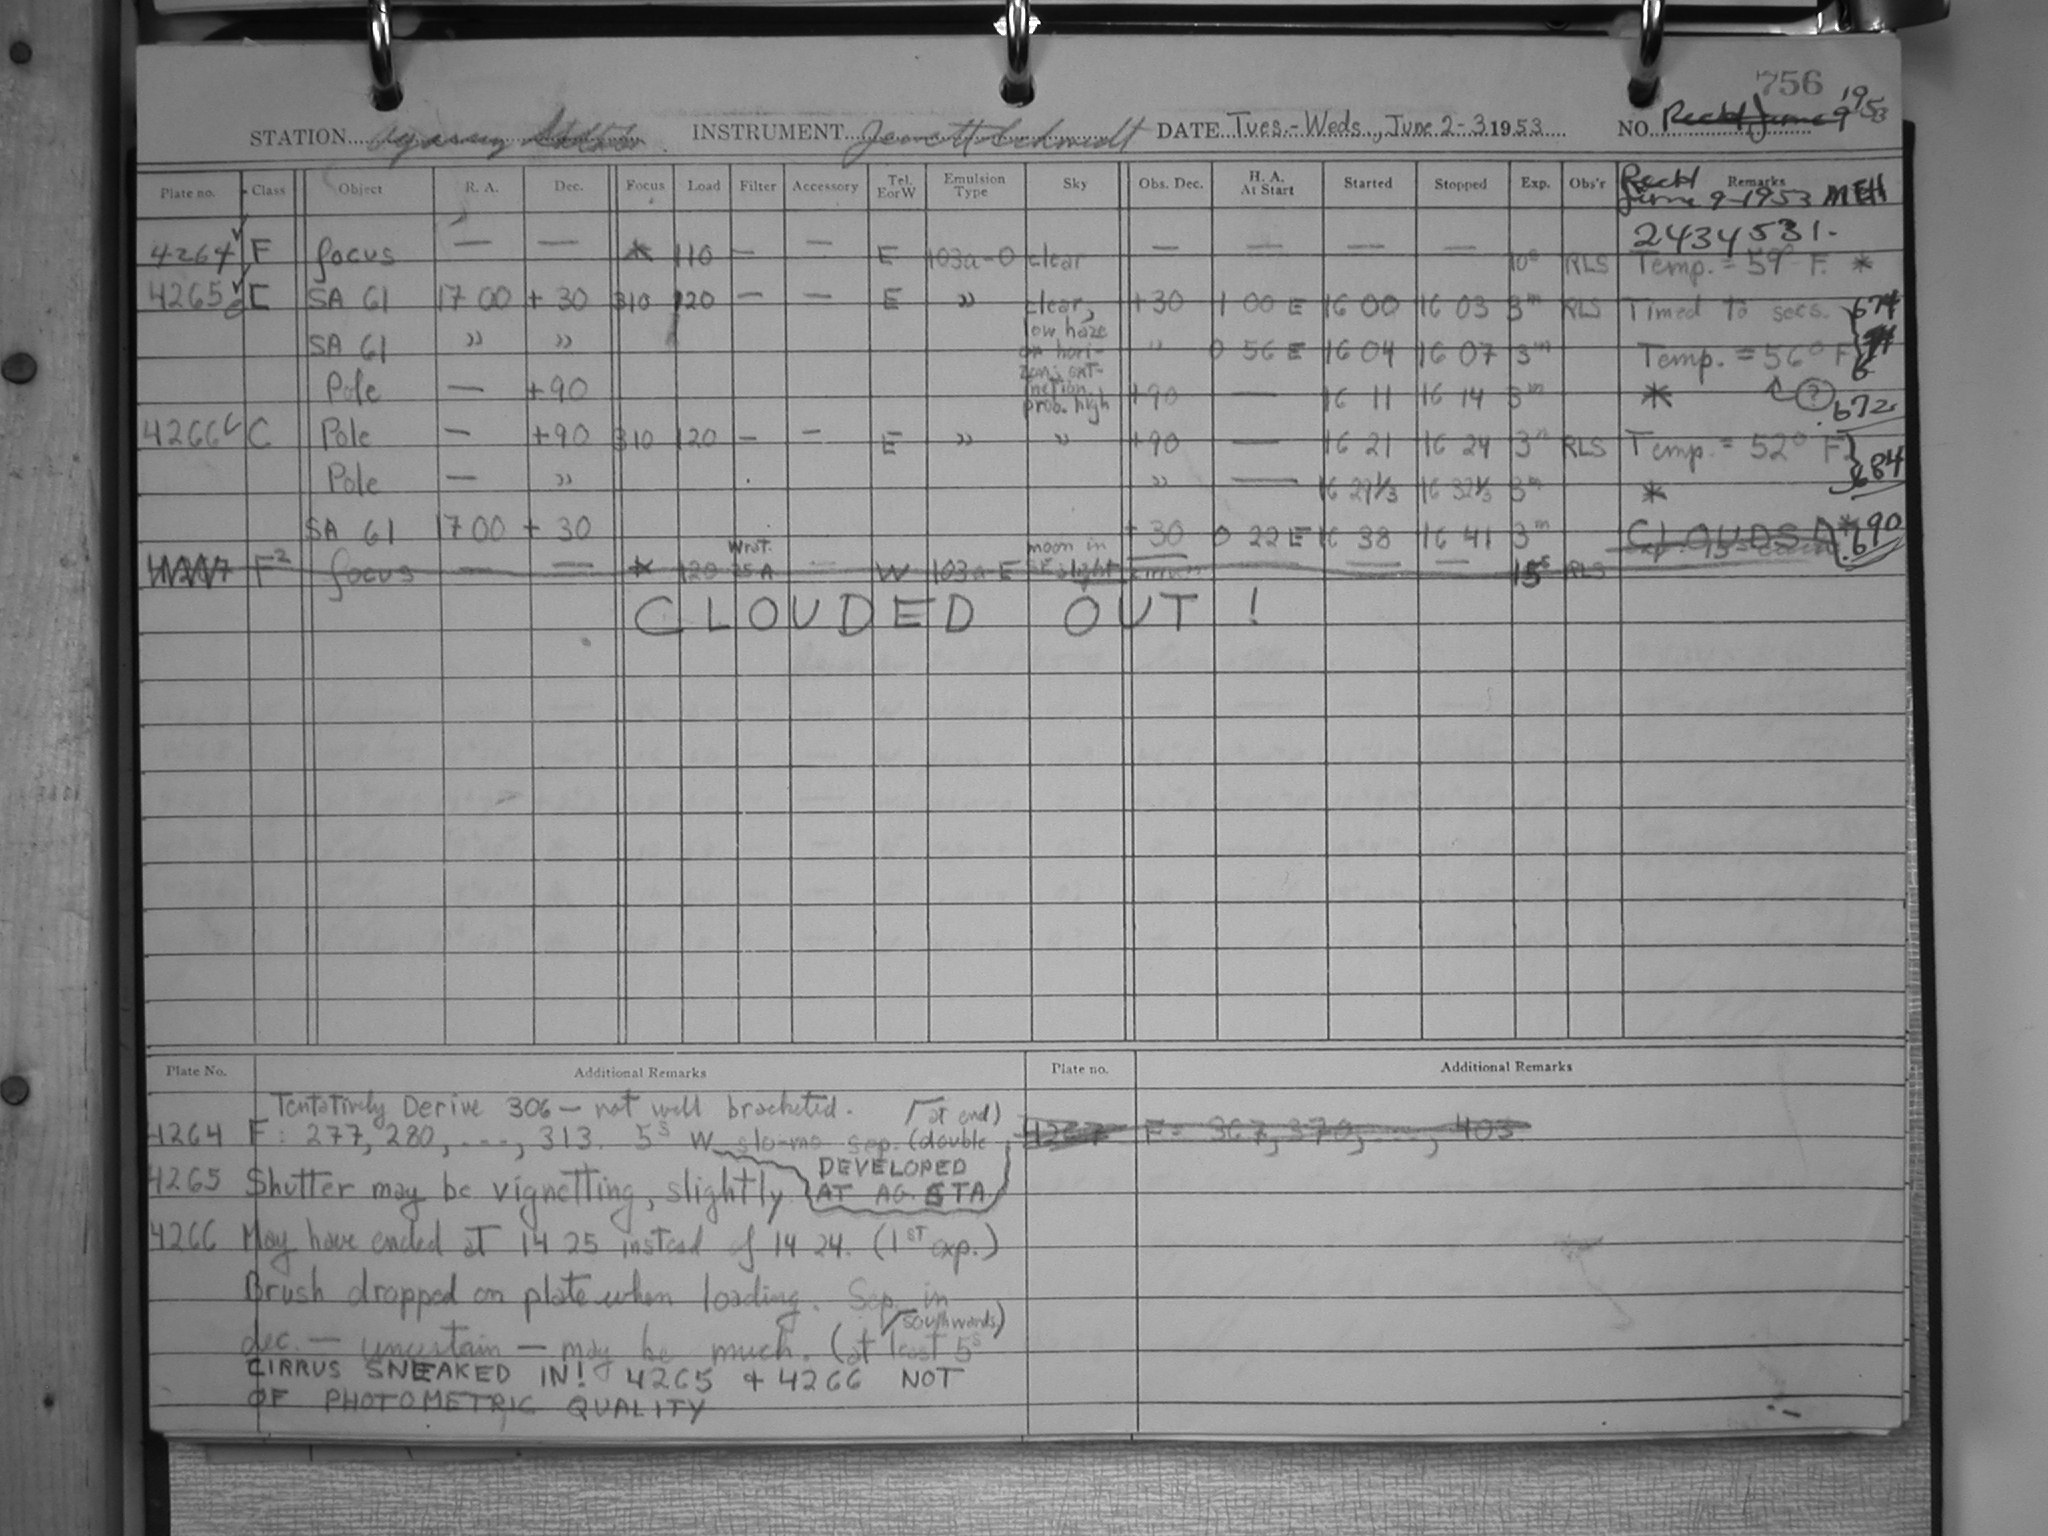 756
STATION Agassiz Station INSTRUMENT Jewett Schmidt DATE Tues.-Weds., June 2-3 1953 NO. Rec'd June 9 1953
Plate no. Class Object R. A. Dec. Focus Load Filter Accessory Tel. E or W Emulsion Type Sky Obs. Dec. H. A. At Start Started Stopped Exp. Obs'r Remarks
Rec'd June 9-1953 MEH
2434531.
4264 F focus — — * 110 — — E 103a-O clear — — — — 10s RLS Temp. = 59° F. *
4265 C SA 61 17 00 +30 310 120 — — E " clear, +30 1 00 E 16 00 16 03 3m RLS Timed to secs. 674
low haze
SA 61 " " on hori- " 0 56 E 16 04 16 07 3m Temp. = 56° F
zon; ext-
Pole — +90 inction +90 — 16 11 16 14 3m * ? 672
prob. high
4266 C Pole — +90 310 120 — — E " " +90 — 16 21 16 24 3m RLS Temp. = 52° F 684
Pole — " " — 16 29 1/3 16 32 1/3 3m *
SA 61 17 00 +30 +30 0 22 E 16 38 16 41 3m CLOUDS * 690
F2 focus — — * 120 Wrat. 25A — W 103a-E moon in slight cirrus — — — 15s RLS
CLOUDED OUT !
Plate No. Additional Remarks Plate no. Additional Remarks
Tentatively Derive 306 — not well bracketed.
4264 F: 277, 280, ..., 313. 5s W slo-mo sep. (double at end)
4267 F= 367, 370, ..., 403
DEVELOPED
AT AG. STA
4265 Shutter may be vignetting, slightly
4266 May have ended at 14 25 instead of 14 24. (1st exp.)
Brush dropped on plate when loading. Sep. in
dec. — uncertain — may be much. (at least 5s southwards)
CIRRUS SNEAKED IN! 4265 + 4266 NOT
OF PHOTOMETRIC QUALITY